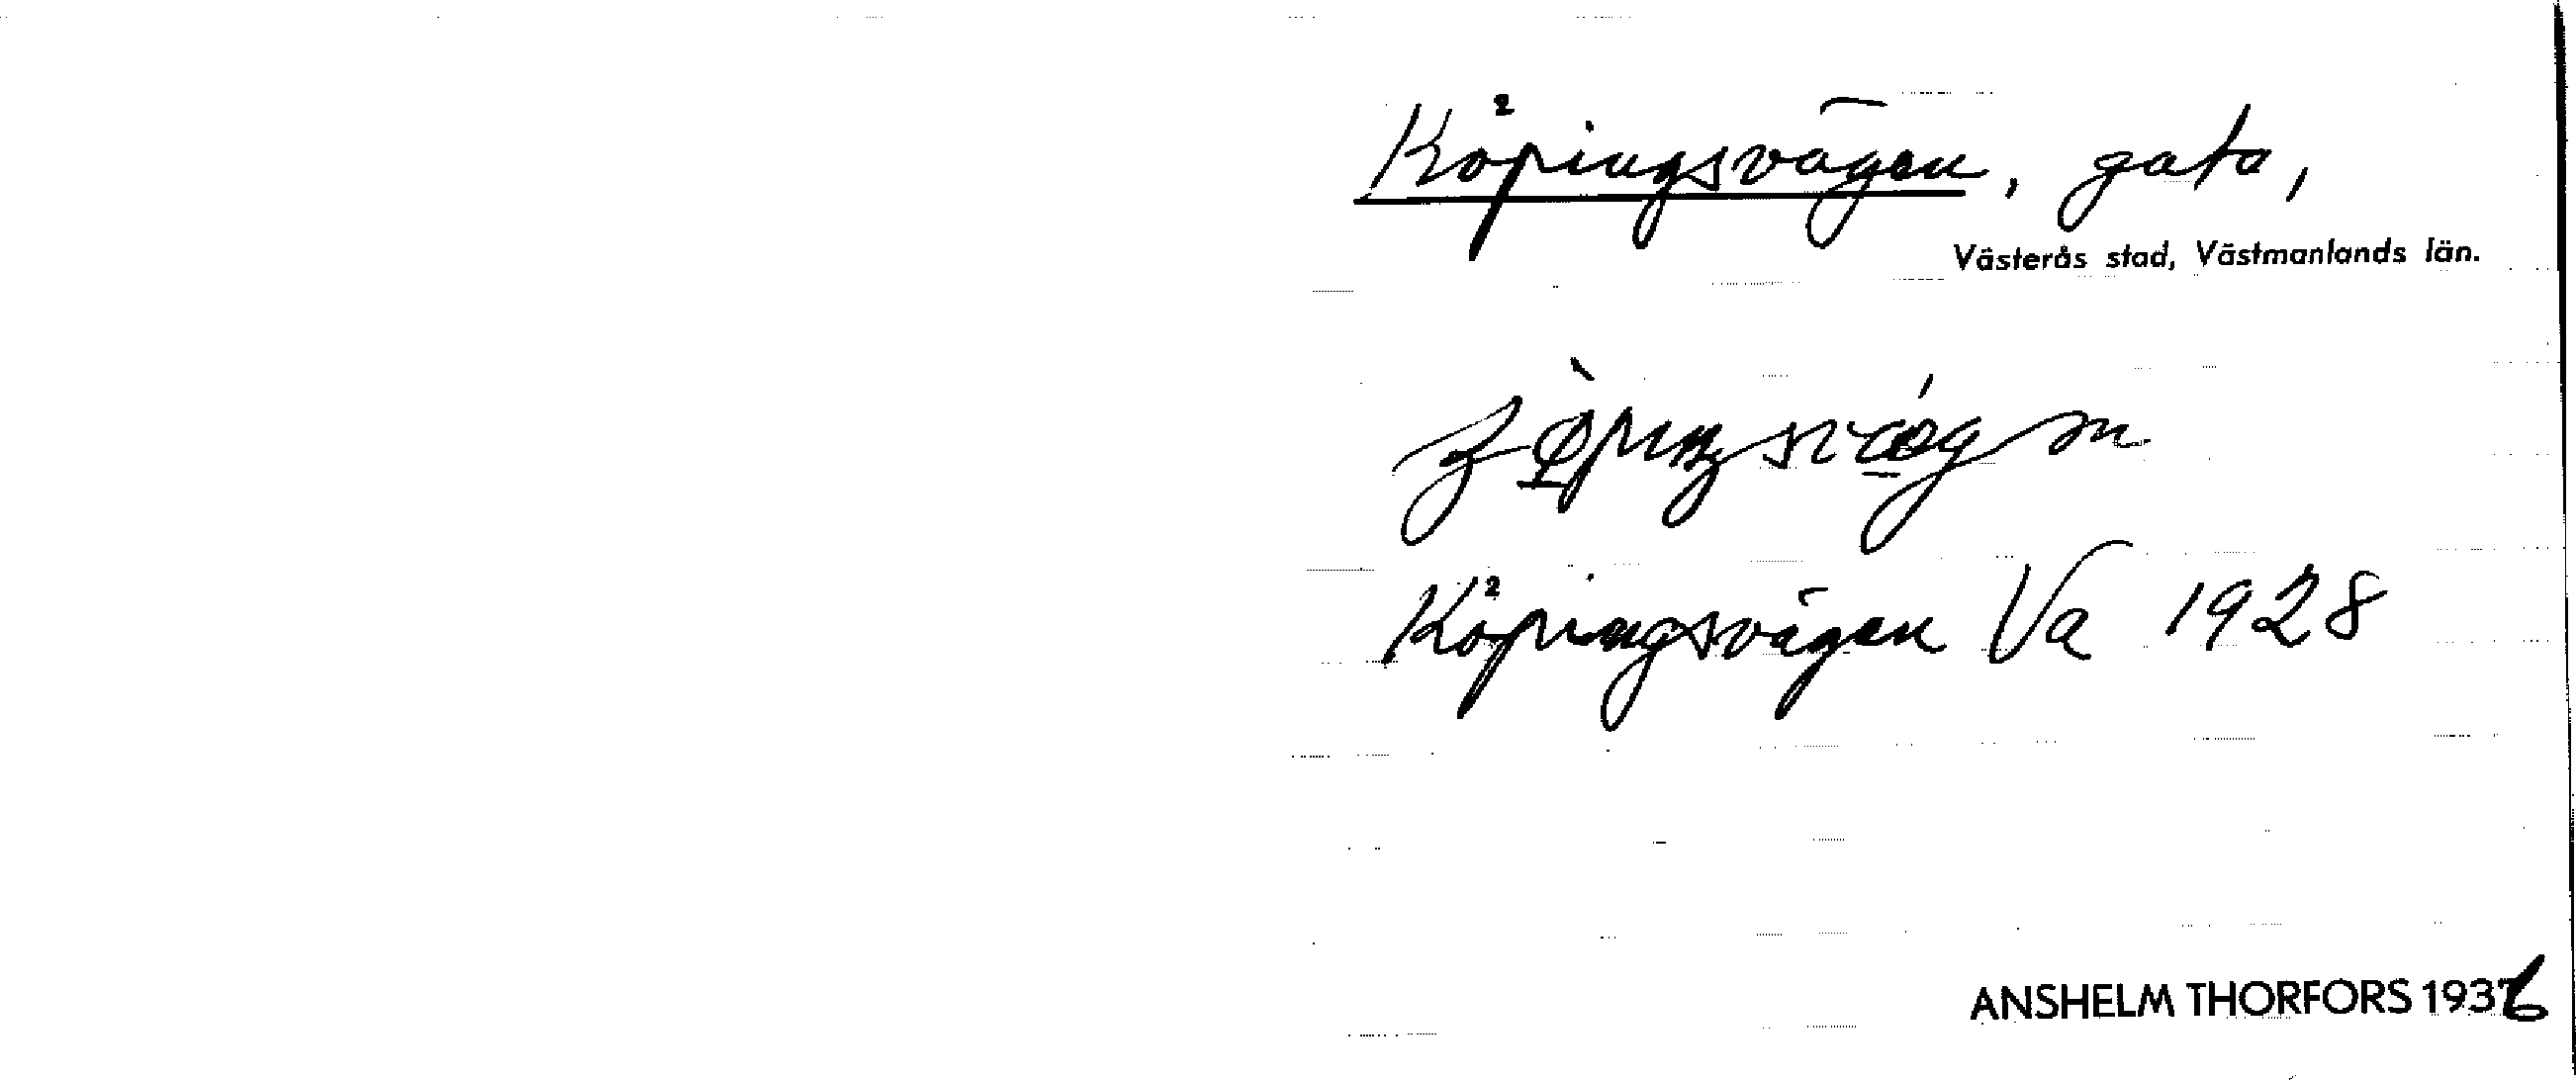 Köpingsvägen, gata,
Västerås stad, Västmanlands län.
Köpingsvägen Va 1928
ANSHELM THORFORS 1936